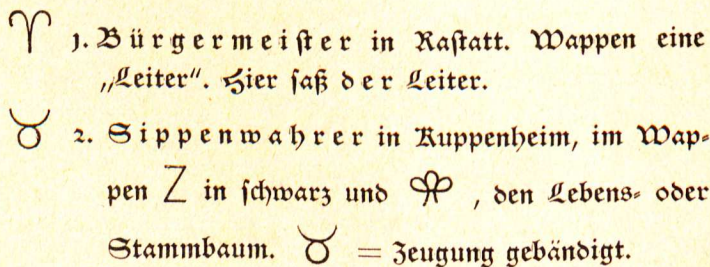 ♈ 1. Bürgermeister in Rastatt. Wappen eine
„Leiter“. Hier saß der Leiter.
♉ 2. Sippenwahrer in Kuppenheim, im Wap-
pen Z in schwarz und , den Lebens- oder
Stammbaum. ♉ = Zeugung gebändigt.